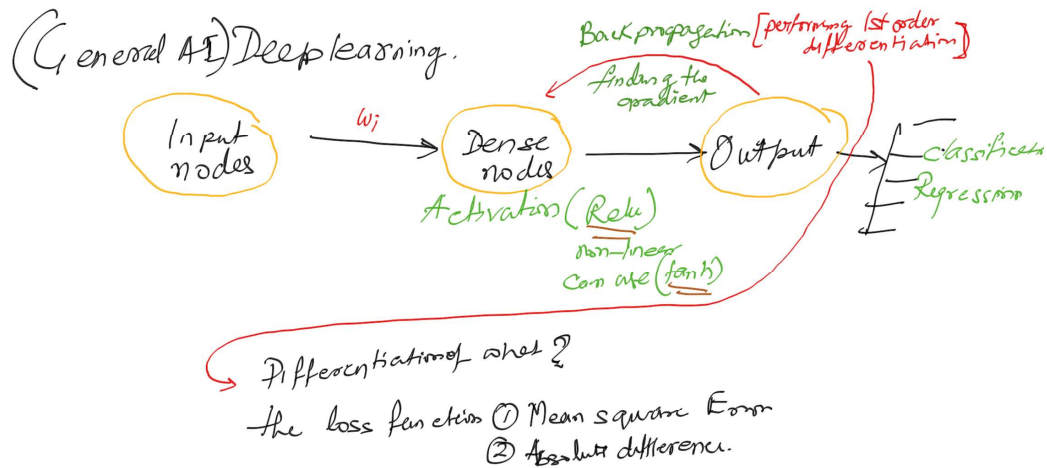 (General AI) Deeplearning.
Backpropagation [performing 1st order differentiation]
finding the gradient
Input nodes
wi
Dense nodes
Output
Classification
Regression
Activation (Relu)
non-linear
Can use (tanh)
Differentiation of what?
the loss function ① Mean square Error
② Absolute difference.